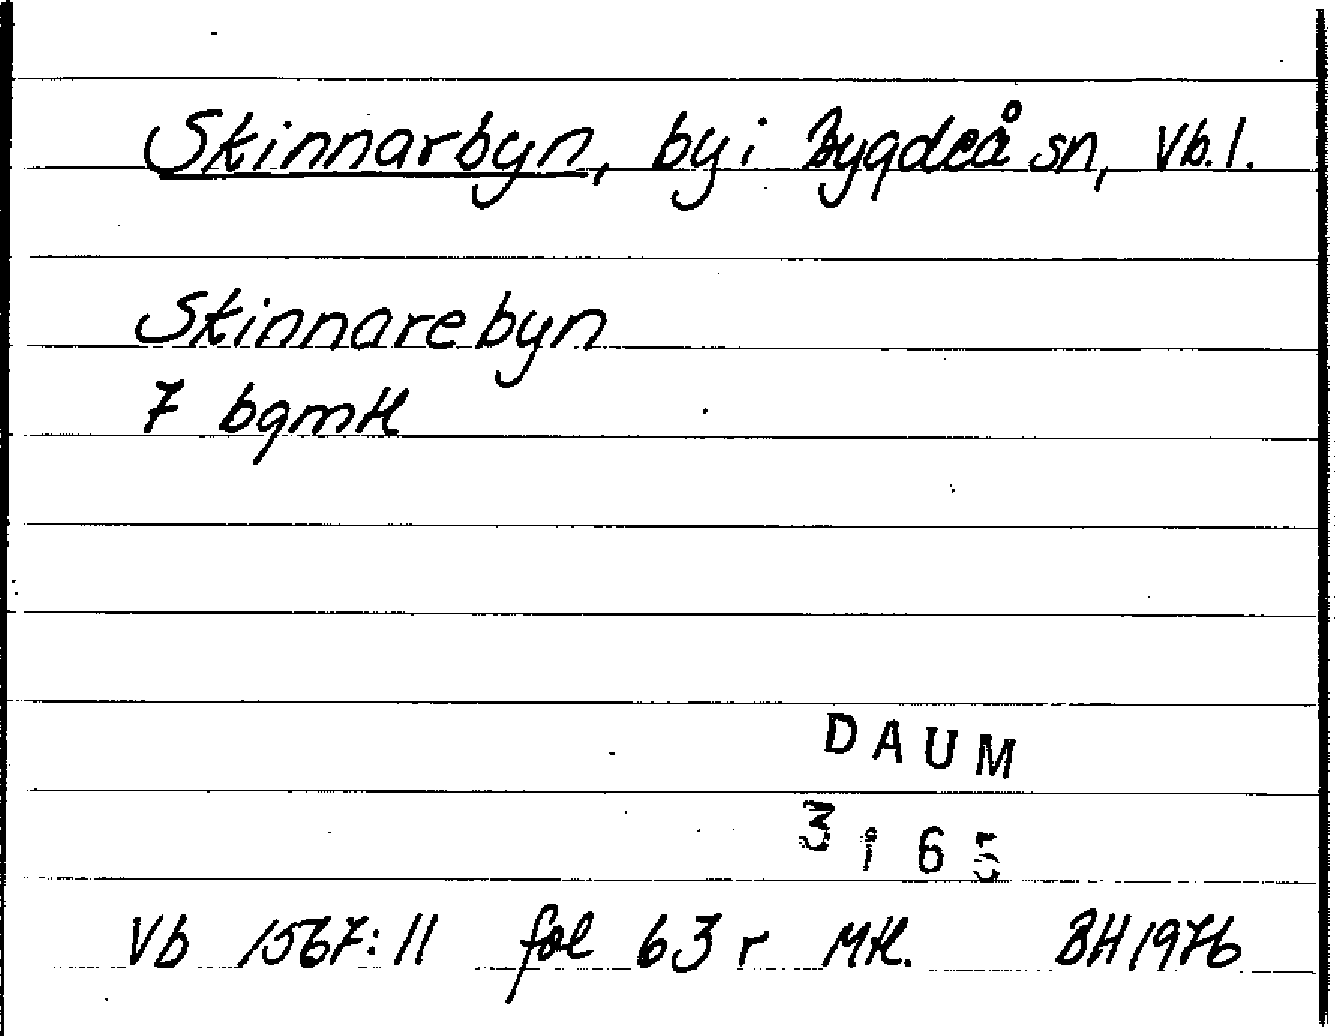 Skinnarbyn, by i Bygdeå sn, Vb. l.
Skinnarebyn
7 bgmtl
DAUM
3165
Vb 1567:11 fol 63 r Mtl. BH 1976